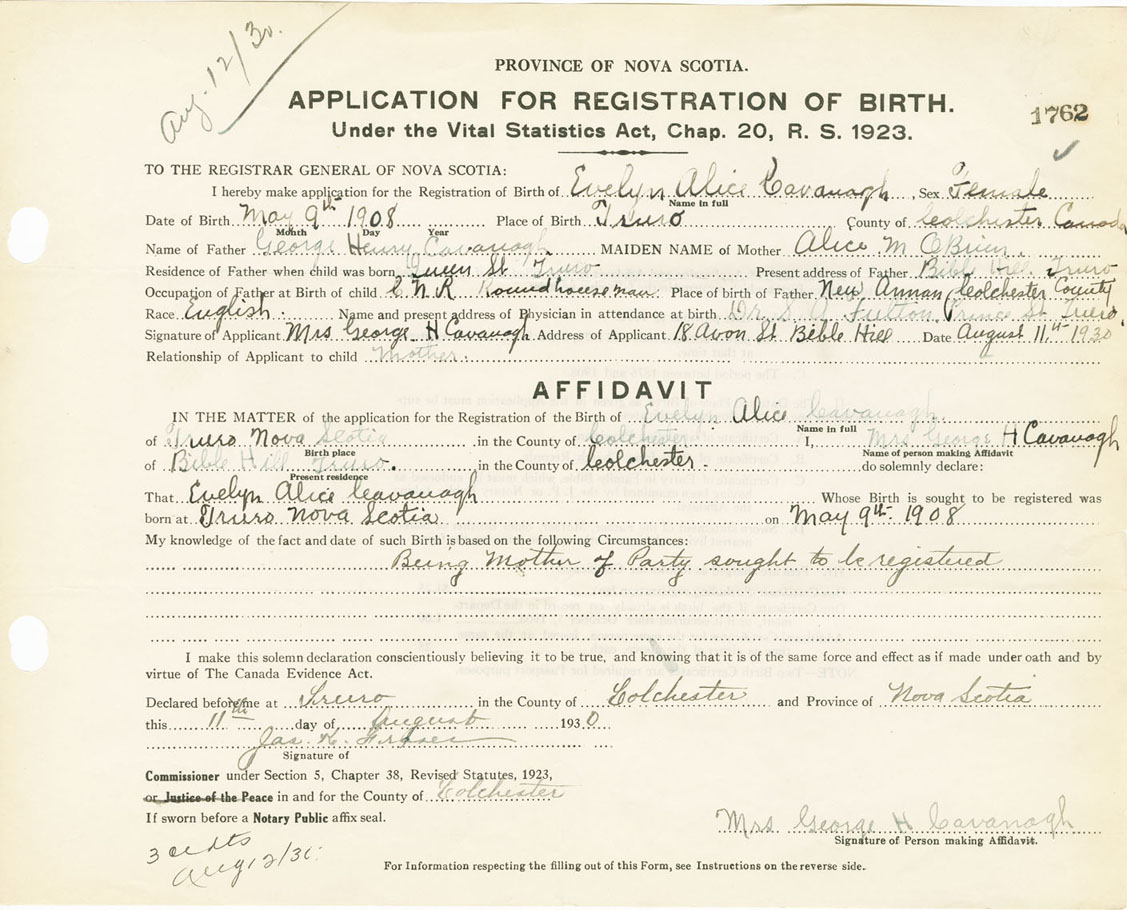 Aug. 12/30.
PROVINCE OF NOVA SCOTIA.
APPLICATION FOR REGISTRATION OF BIRTH.
1762
Under the Vital Statistics Act, Chap. 20, R. S. 1923.
TO THE REGISTRAR GENERAL OF NOVA SCOTIA:
I hereby make application for the Registration of Birth of Evelyn Alice Cavanagh Sex Female
Name in full
Date of Birth May 9th 1908 Place of Birth Truro County of Colchester Canada
Month Day Year
Name of Father George Henry Cavanagh MAIDEN NAME of Mother Alice M OBrien
Residence of Father when child was born Queen St Truro Present address of Father Bible Hill Truro
Occupation of Father at Birth of child C N R Roundhouseman Place of birth of Father New Annan Colchester County
Race English Name and present address of Physician in attendance at birth Dr. S A Fulton Prince St Truro
Signature of Applicant Mrs George H Cavanagh Address of Applicant 18 Avon St Bible Hill Date August 11th 1930
Relationship of Applicant to child Mother.
AFFIDAVIT
IN THE MATTER of the application for the Registration of the Birth of Evelyn Alice Cavanagh
Name in full
of Truro Nova Scotia in the County of Colchester I, Mrs George H Cavanagh
Birth place Name of person making Affidavit
of Bible Hill Truro. in the County of Colchester do solemnly declare:
Present residence
That Evelyn Alice Cavanagh Whose Birth is sought to be registered was
born at Truro Nova Scotia on May 9th 1908
My knowledge of the fact and date of such Birth is based on the following Circumstances:
Being Mother of Party sought to be registered
I make this solemn declaration conscientiously believing it to be true, and knowing that it is of the same force and effect as if made under oath and by
virtue of The Canada Evidence Act.
Declared before me at Truro in the County of Colchester and Province of Nova Scotia
this 11th day of August 1930
Jas.
Signature of
Commissioner under Section 5, Chapter 38, Revised Statutes, 1923,
or Justice of the Peace in and for the County of Colchester
If sworn before a Notary Public affix seal.
Mrs George H Cavanagh
Signature of Person making Affidavit.
3
Aug 12/30.
For Information respecting the filling out of this Form, see Instructions on the reverse side.